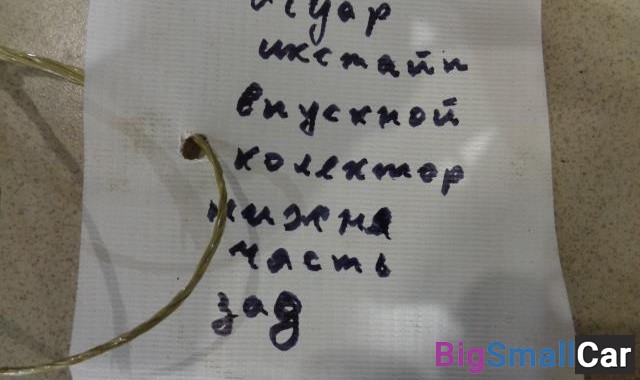 ягуар
икстайп
впускной
колектор
нижня
часть
зад
BigSmallCar